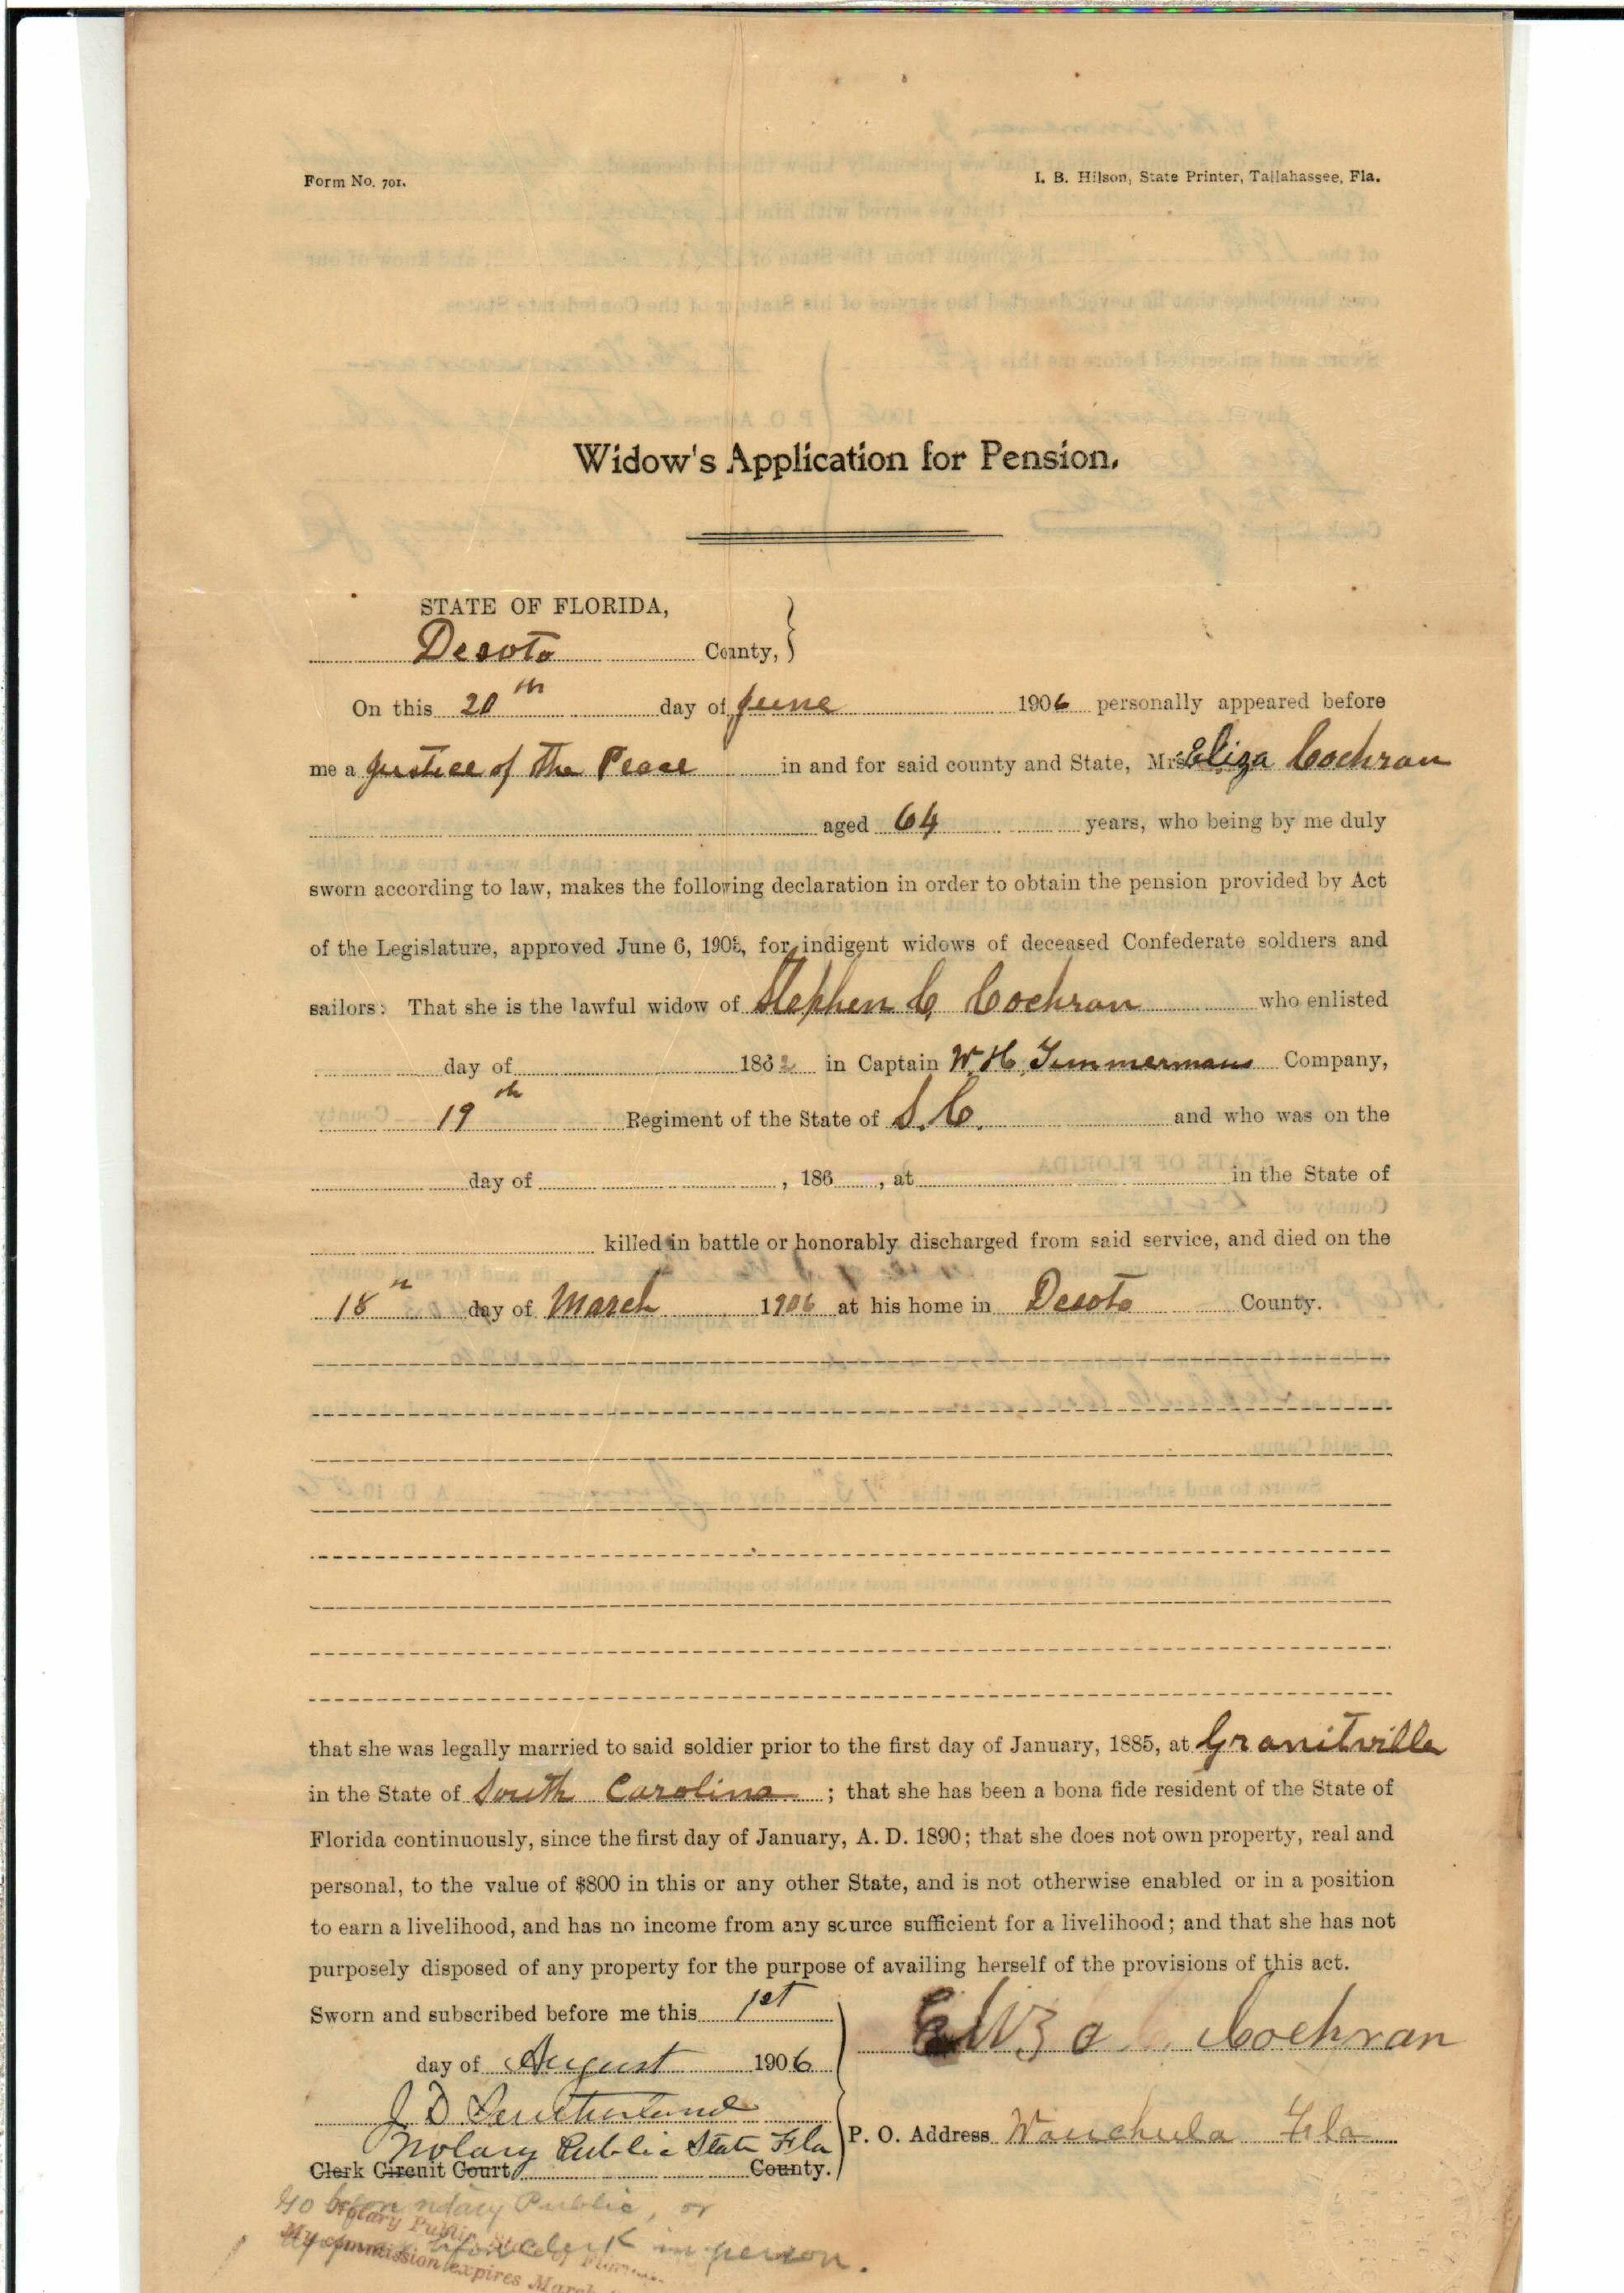 Form No. 701.
I. B. Hilson, State Printer, Tallahassee, Fla.
Widow's Application for Pension.
STATE OF FLORIDA,
Desoto County,
On this 20th day of June 1906 personally appeared before
me a Justice of the Peace in and for said county and State, Mrs Eliza Cochran
aged 64 years, who being by me duly
sworn according to law, makes the following declaration in order to obtain the pension provided by Act
of the Legislature, approved June 6, 1905, for indigent widows of deceased Confederate soldiers and
sailors: That she is the lawful widow of Stephen C Cochran who enlisted
day of 1862 in Captain W. H. Timmermans Company,
19th Regiment of the State of S. C. and who was on the
day of , 186 , at in the State of
killed in battle or honorably discharged from said service, and died on the
18th day of March 1906 at his home in Desoto County.
that she was legally married to said soldier prior to the first day of January, 1885, at Granitville
in the State of South Carolina ; that she has been a bona fide resident of the State of
Florida continuously, since the first day of January, A. D. 1890; that she does not own property, real and
personal, to the value of $800 in this or any other State, and is not otherwise enabled or in a position
to earn a livelihood, and has no income from any source sufficient for a livelihood; and that she has not
purposely disposed of any property for the purpose of availing herself of the provisions of this act.
Sworn and subscribed before me this 1st
Eliza Cochran
day of August 1906
J D Southerland
Notary Public State Fla
P. O. Address Wauchula Fla
Clerk Circuit Court County.
Go before notary Public, or
before clerk in person.
Notary Public
My commission expires March